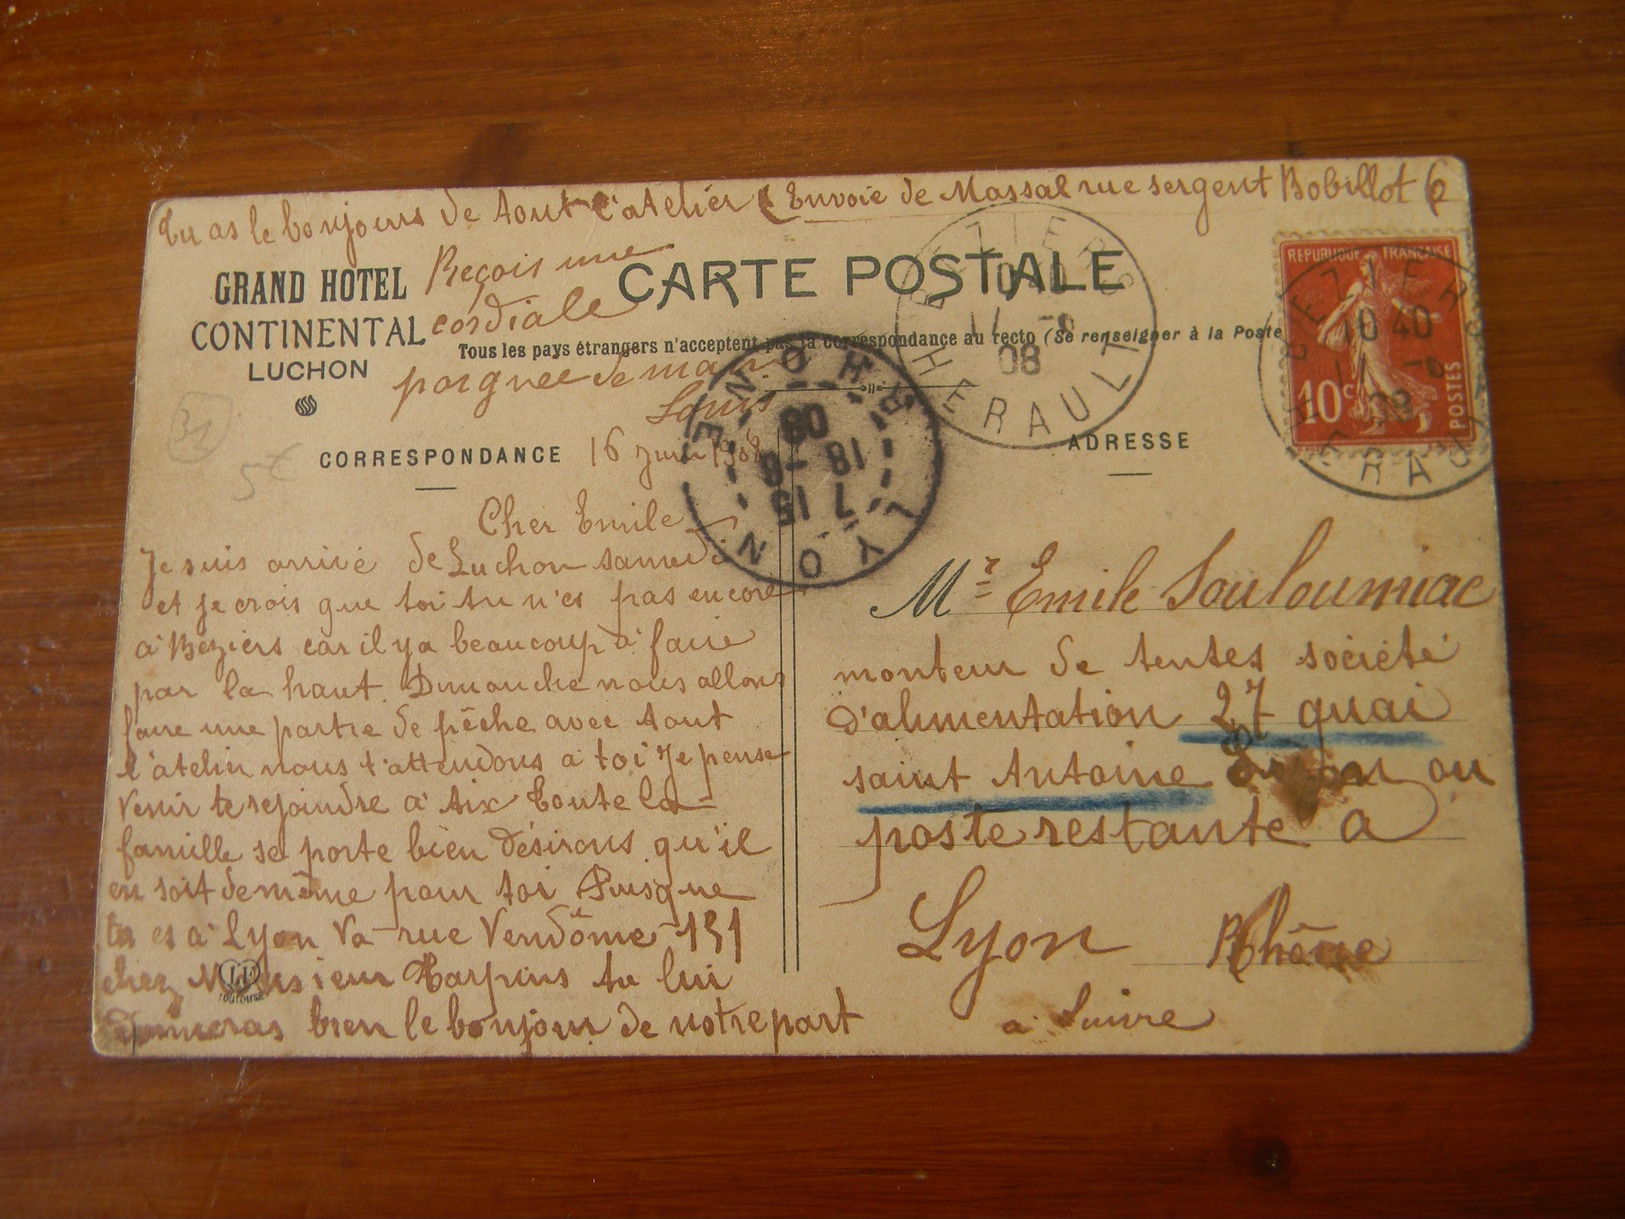 Tu as le boujours de tout l'atelier (Envoie de Massal rue sergent Bobillot 6
GRAND HOTEL
CONTINENTAL
LUCHON
Reçois une
cordiale
poignee de main
Louis
CARTE POSTALE
Tous les pays étrangers n'acceptent pas la correspondance au recto (Se renseigner à la Poste
31
5€
CORRESPONDANCE
16 juin 1908
Cher Emile
Je suis arrivé de Luchon samedi
et je crois que toi tu n'es pas encore
à Béziers car il ya beaucoup à faire
par la haut. Dimanche nous allons
faire une partie de pêche avec tout
l'atelier nous t'attendons a toi Je pense
venir te rejoindre à Aix Toute la
famille se porte bien désirons qu'il
en soit de même pour toi Puisque
tu es à Lyon va rue Vendôme 151
chez Monsieur Harpins tu lui
donneras bien le boujour de notre part
LYON RHONE
7 15
18 -6
08
BEZIERS
17 -6
08
HERAULT
REPUBLIQUE FRANÇAISE
10c
POSTES
BEZIERS
10 40
17 -6
08
HERAULT
ADRESSE
Mr Emile Souloumiac
monteur de tentes société
d'alimentation 27 quai
saint Antoine Lyon ou
poste restante à
Lyon Rhône
a Suivre
TOULOUSE